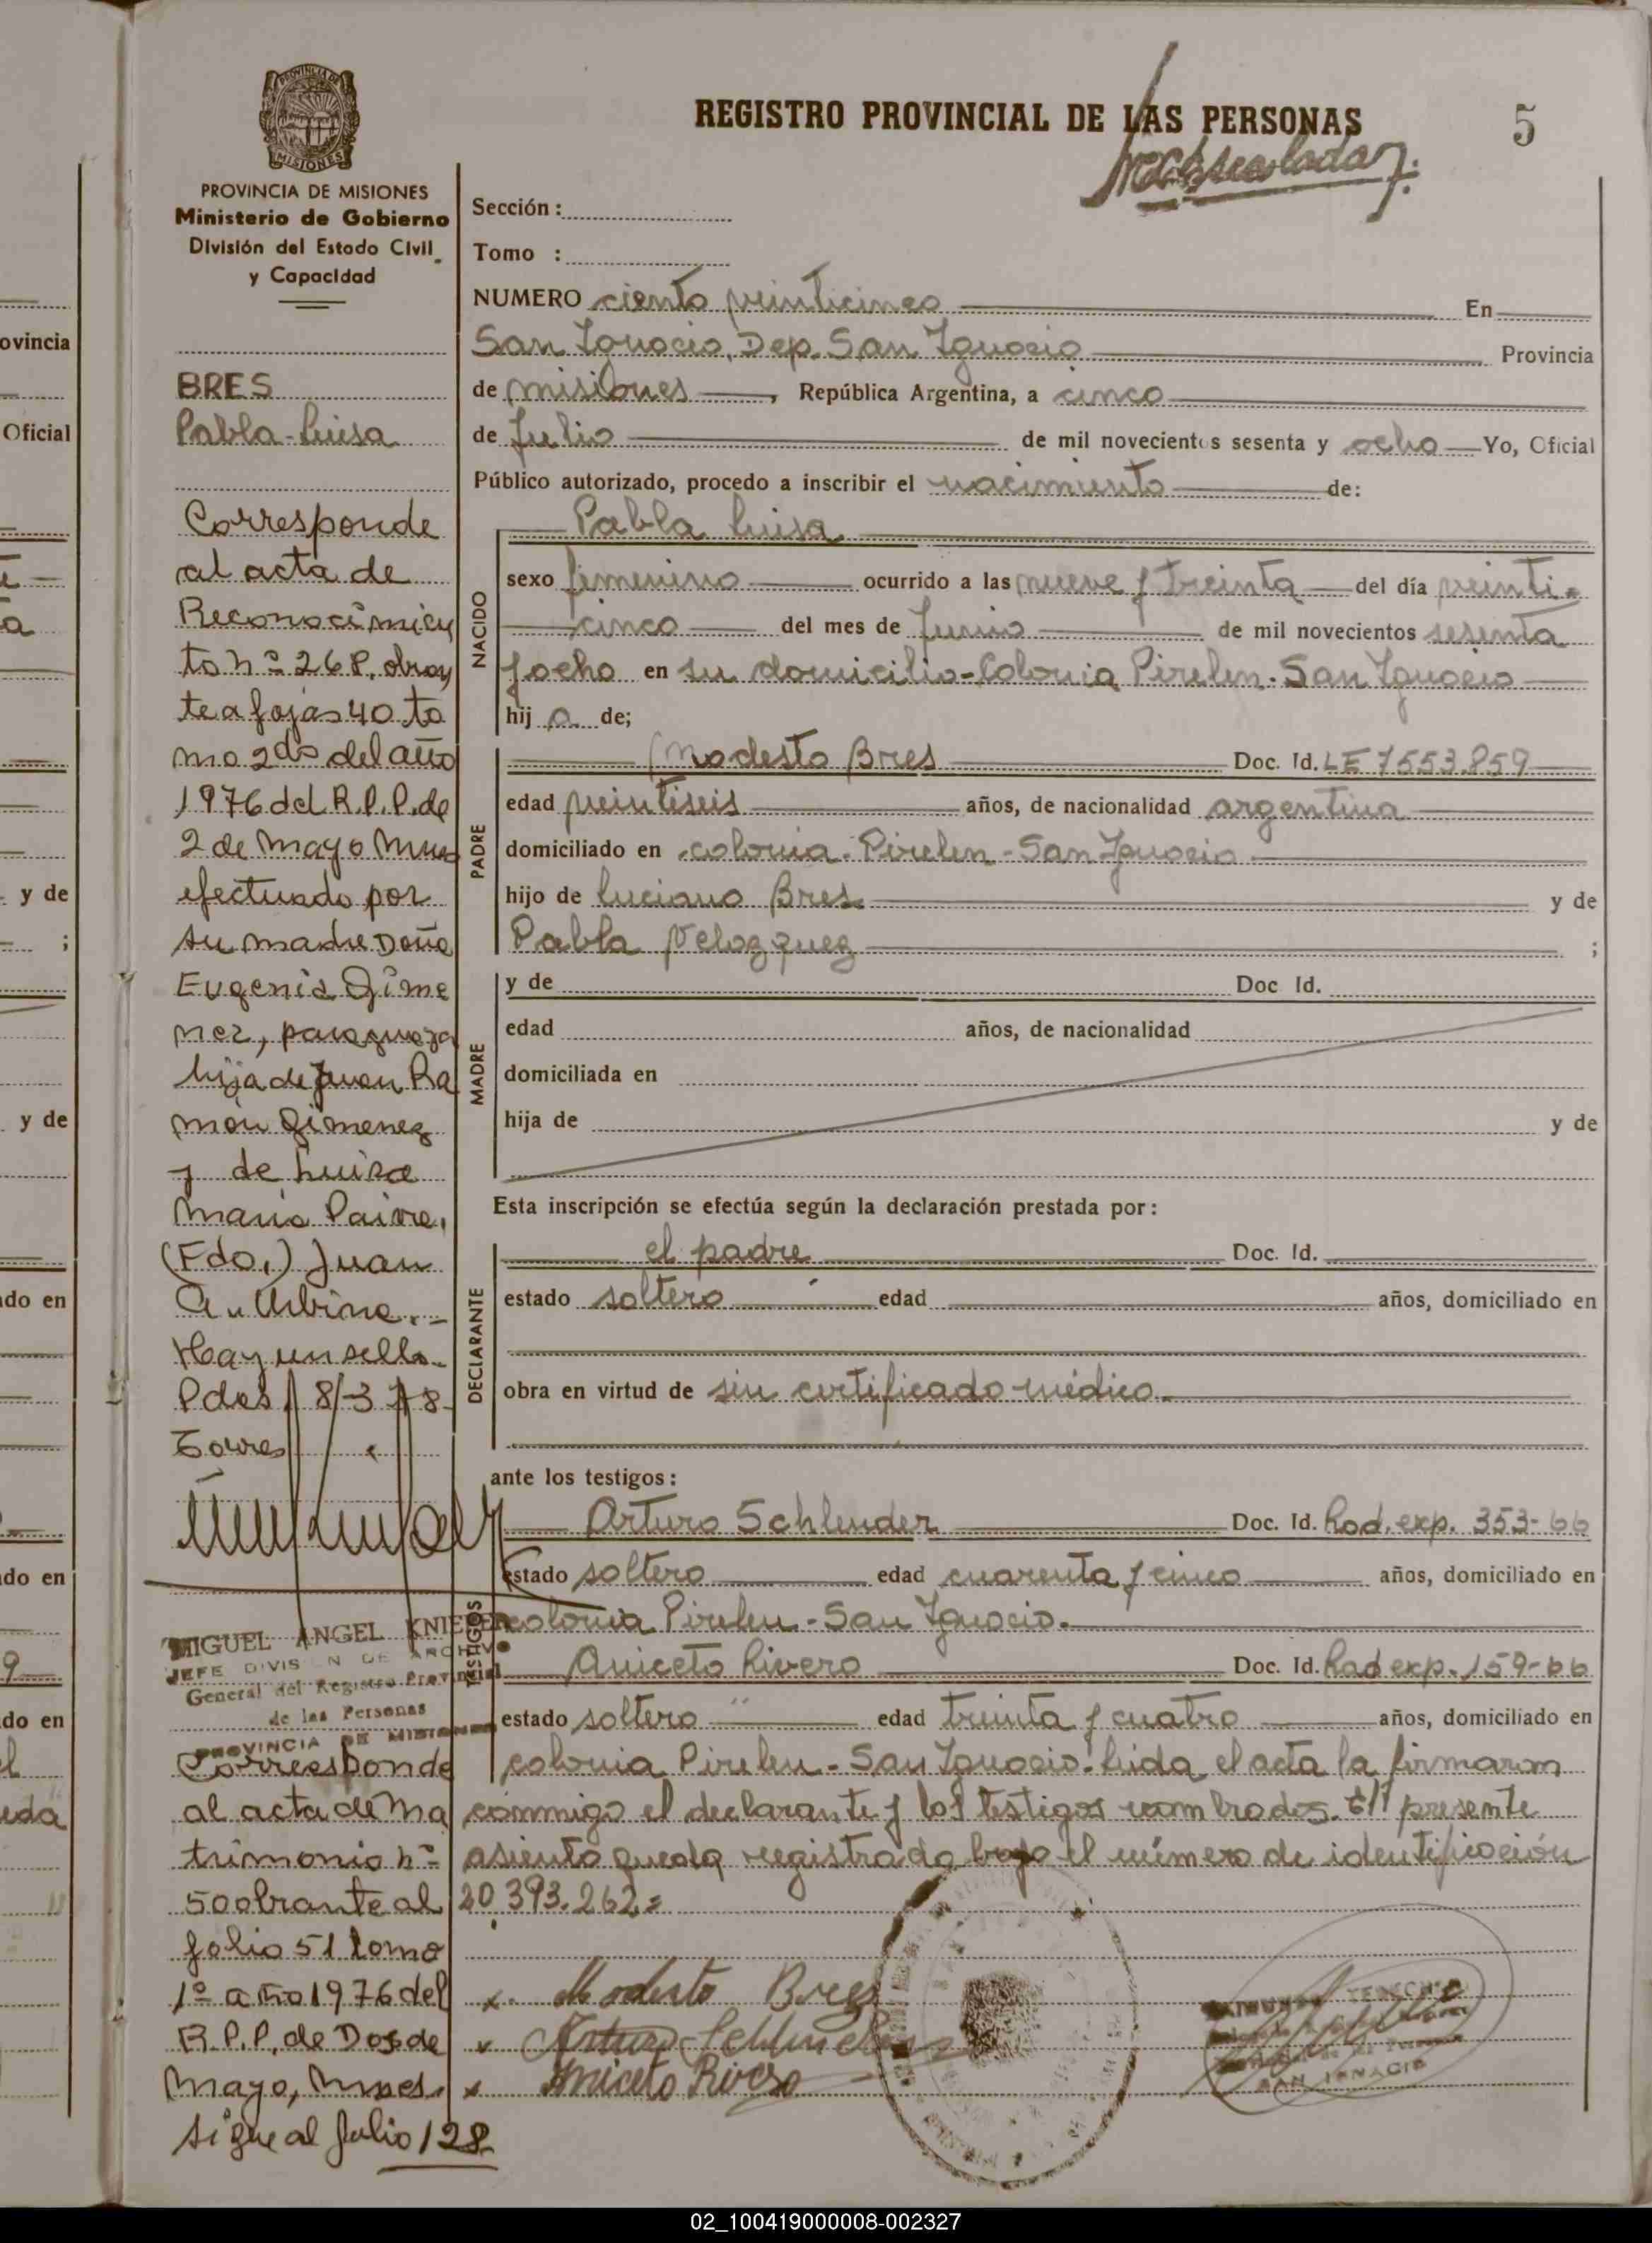 REGISTRO PROVINCIAL DE LAS PERSONAS
5
PROVINCIA DE MISIONES
PROVINCIA DE MISIONES
Ministerio de Gobierno
División del Estado Civil
y Capacidad
BRES
Pabla-Luisa
Corresponde
al acta de
Reconocimien
to nº 268, obran
te a fojas 40 to
mo 2do del año
1976 del R.P.P. de
2 de Mayo Mnes
efectuado por
su madre Doña
Eugenia Gime
nez, paraguaya
hija de Juan Ra
món Gimenez
y de Luisa
María Paiva,
(Fdo,) Juan
A. Urbina.-
Hay un sello.
Pdas 8/3 78-
Torres
MIGUEL ANGEL KNIEPER
JEFE DIVISION DE ARCHIVO
General del Registro Provincial
de las Personas
PROVINCIA DE MISIONES
Corresponde
al acta de Ma
trimonio nº
50 obrante al
folio 51 tomo
1º año 1976 del
R.P.P. de Dos de
Mayo, Mnes.
Sigue al folio 128
Sección:
Tomo :
NUMERO ciento veinticinco En
San Ignacio, Dep. San Ignacio Provincia
de Misiones, República Argentina, a cinco
de Julio de mil novecientos sesenta y ocho Yo, Oficial
Público autorizado, procedo a inscribir el nacimiento de:
NACIDO
Pabla Luisa
sexo femenino ocurrido a las nueve y treinta del día veinti-
cinco del mes de Junio de mil novecientos sesenta
y ocho en su domicilio-Colonia Pirelen-San Ignacio
hij a de;
PADRE
Modesto Bres Doc. Id. LE 7553.859
edad veintiseis años, de nacionalidad argentina
domiciliado en colonia Pirelen-San Ignacio
hijo de Luciano Bres y de
Pabla Velozquez ;
MADRE
y de Doc Id.
edad años, de nacionalidad
domiciliada en
hija de y de
Esta inscripción se efectúa según la declaración prestada por:
DECLARANTE
el padre Doc. Id.
estado soltero edad años, domiciliado en
obra en virtud de sin certificado médico.
ante los testigos:
TESTIGOS
Arturo Schlender Doc. Id. Rad. exp. 353-66
estado soltero edad cuarenta y cinco años, domiciliado en
colonia Pirelen-San Ignacio.
Aniceto Rivero Doc. Id. Rad exp. 159-66
estado soltero edad treinta y cuatro años, domiciliado en
colonia Pirelen-San Ignacio. Leida el acta la firmaron
conmigo el declarante y los testigos nombrados. El presente
asiento queda registrado bajo el número de identificación
20.393.262=
x. Modesto Bres
x Arturo Schlender
x Aniceto Rivero
SAN IGNACIO
ovincia
Oficial
y de
;
y de
do en
do en
do en
02_100419000008-002327